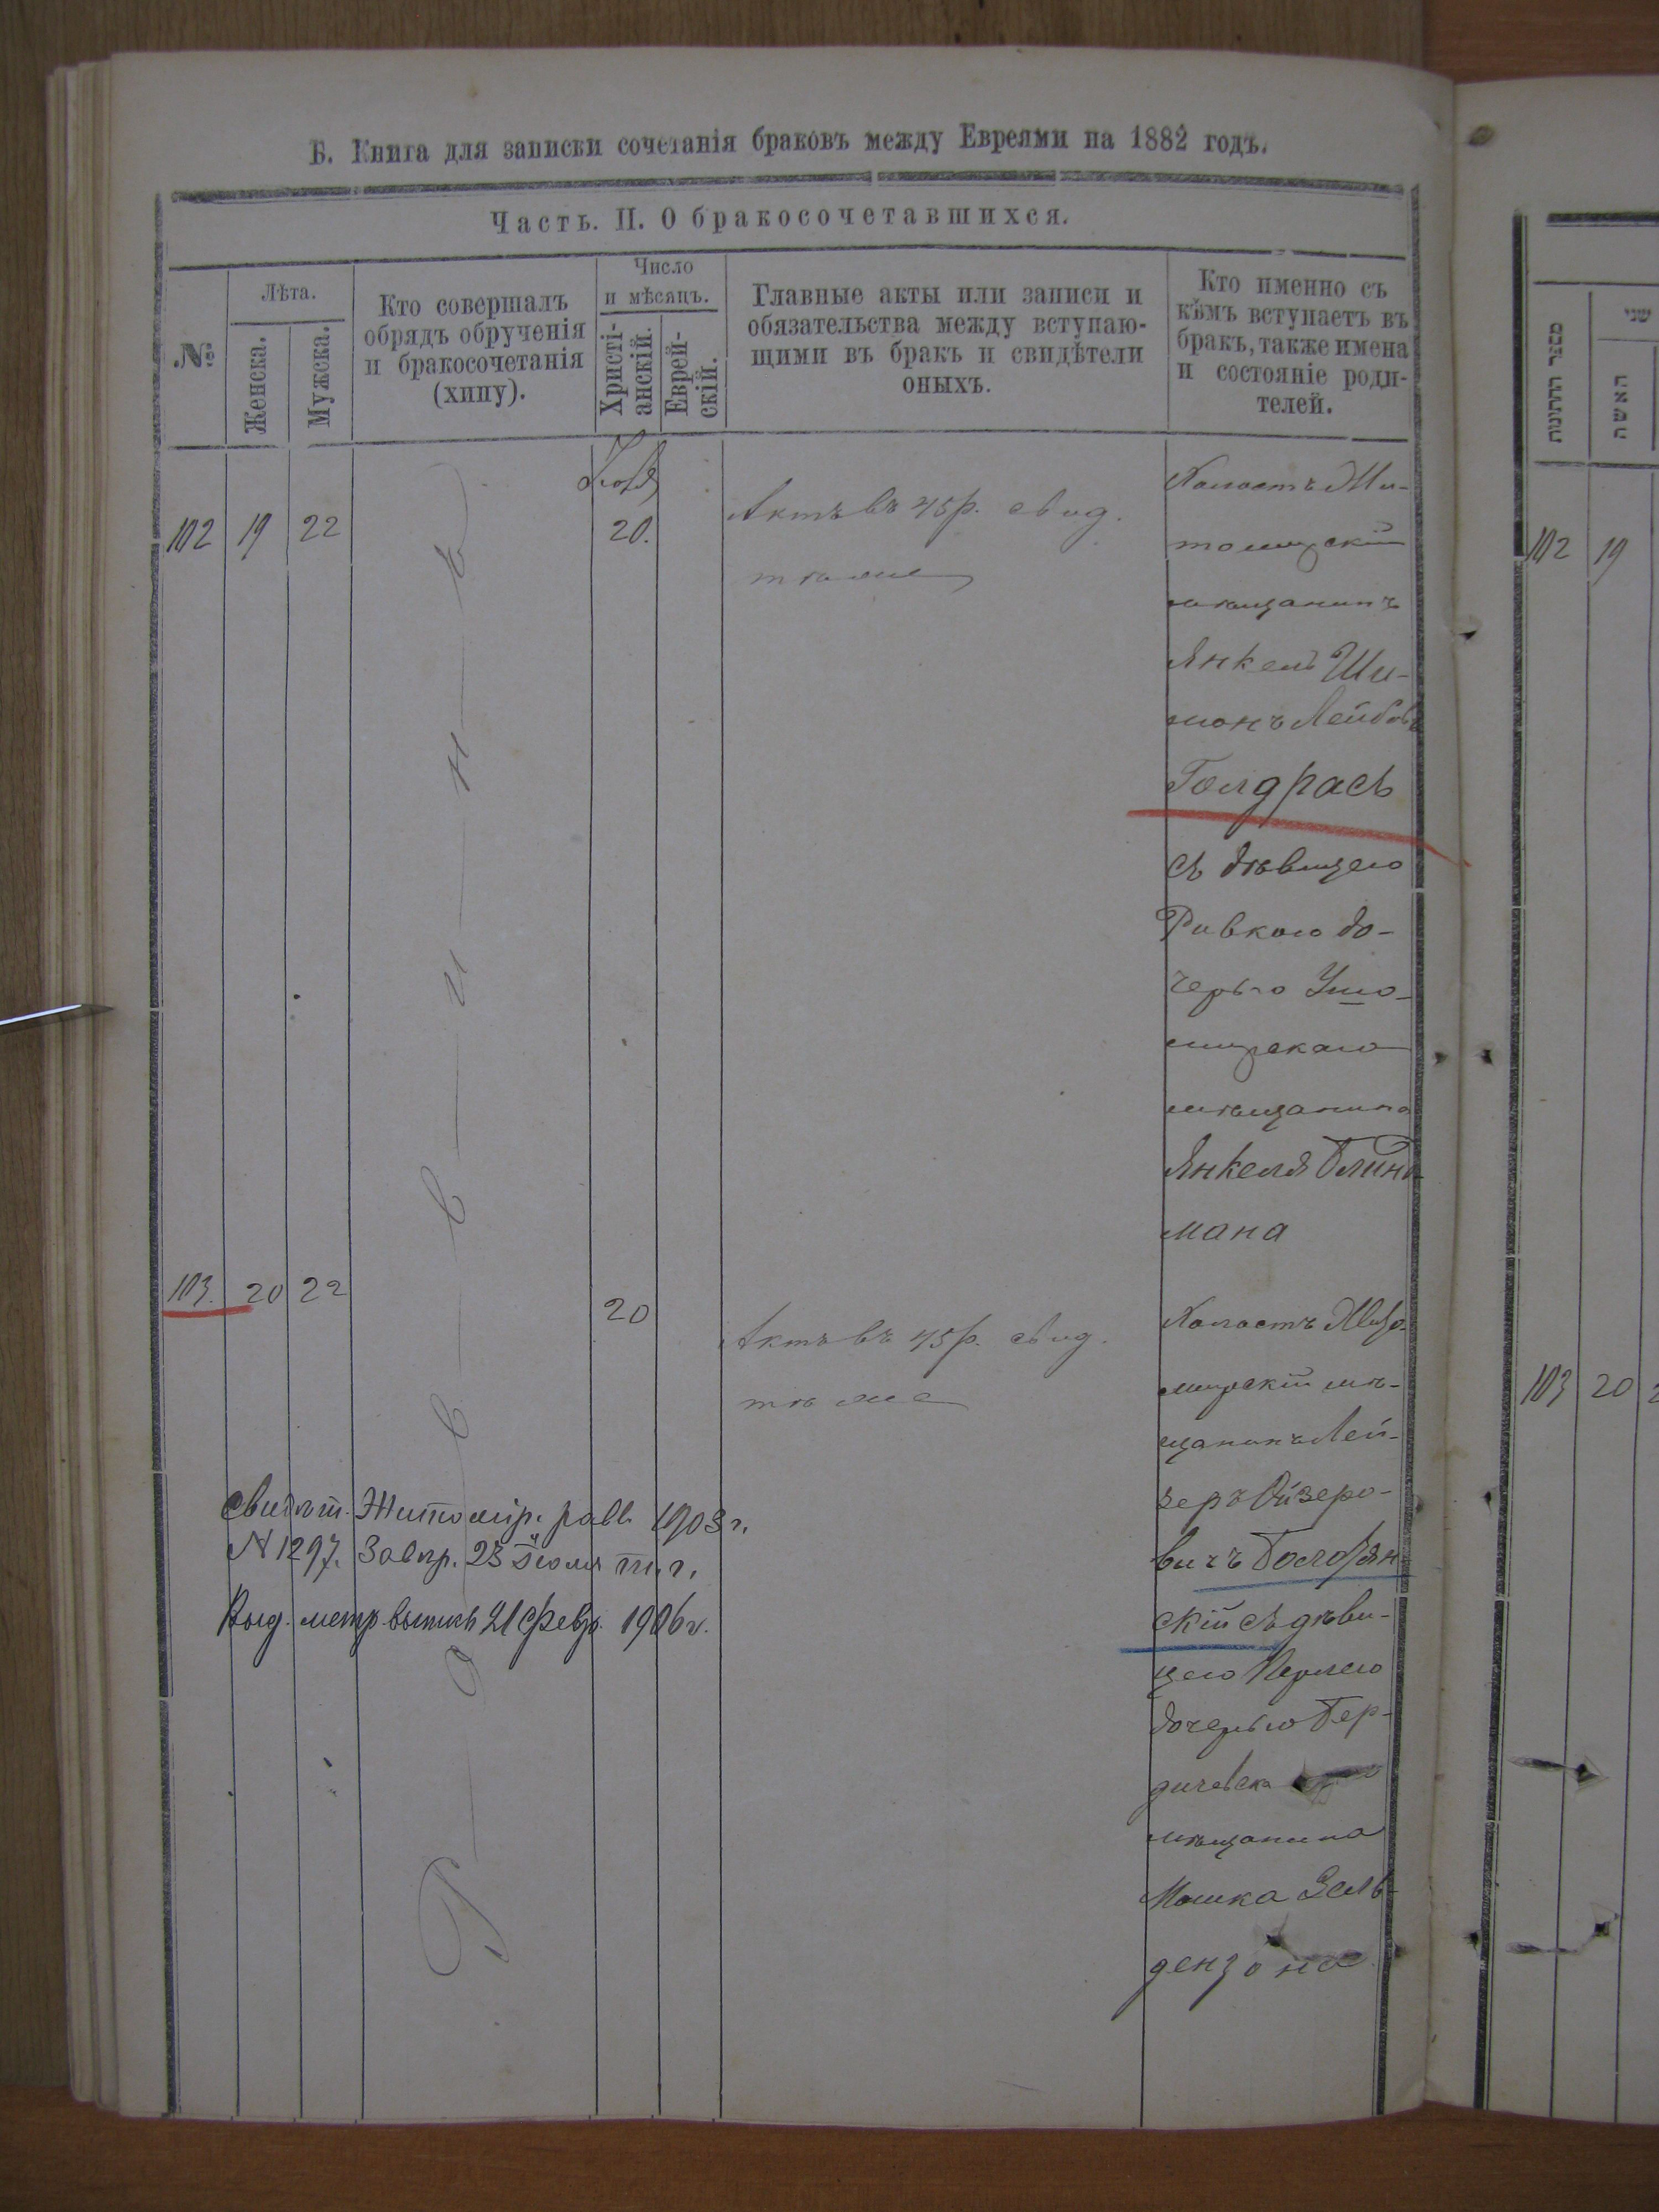 Б. Книга для записки сочетанія браковъ между Евреями на 1882 годъ.
Часть. II. О бракосочетавшихся.
№
Лѣта.
Женска.
Мужска.
Кто совершалъ
обрядъ обрученія
и бракосочетанія
(хипу).
Число
и мѣсяцъ.
Христі-
анскій.
Еврей-
скій.
Главные акты или записи и
обязательства между вступаю-
щими въ бракъ и свидѣтели
оныхъ.
Кто именно съ
кѣмъ вступаетъ въ
бракъ, также имена
и состояніе роди-
телей.
102 19 22
20.
Актъ въ 45 р. свид.
тѣ же
Холостъ Жи-
томирскій
мѣщанинъ
Янкель Ши-
монъ Лейбовъ
Голдрасъ
съ дѣвицею
Ривкою до-
черью Ушо-
мирскаго
мѣщанина
Янкеля Блин-
мана
Раввинъ
103. 20 22
20
Актъ въ 45 р. свид.
тѣ же
Холостъ
мирскій мѣ-
щанинъ Лей-
зеръ Ойзеро-
вичъ
скій съ дѣви-
цею Перлею
дочерью Бер-
дичевска
мѣщанина
Мошка Зель-
дензона
Свидѣт. Житомір. равв. 1903 г.
N 1297. Завѣр. 23 Іюля т. г.
Выд. метр. выпись 21 Февр. 1906 г.
מספר החתונות
שני
האשה
102 19
103 20 2